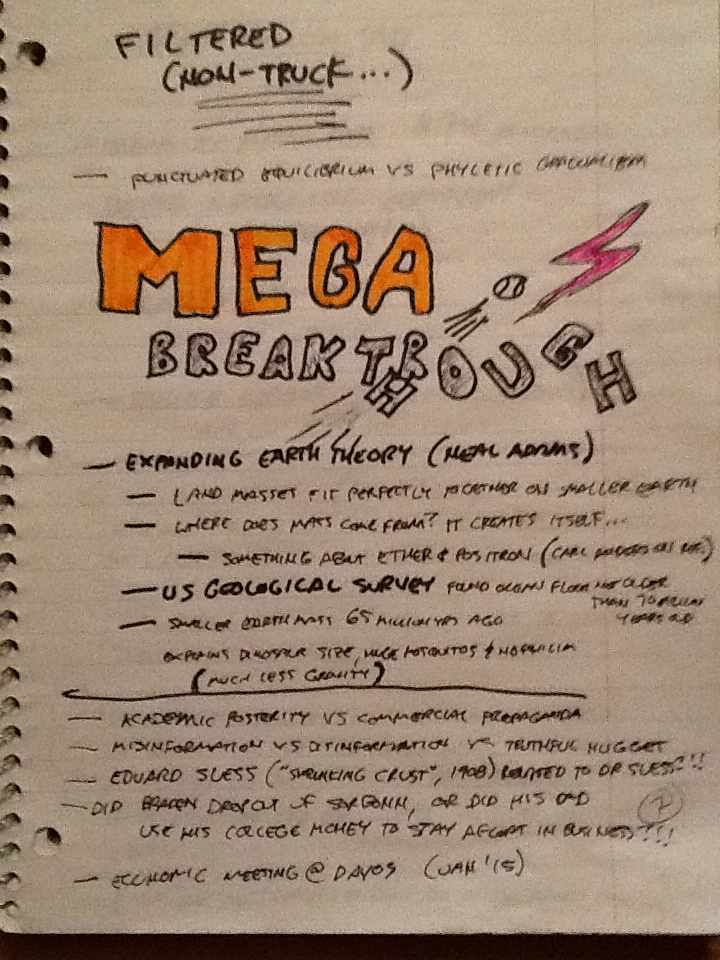 FILTERED
(NON-TRUCK...)
— PUNCTUATED EQUILIBRIUM VS PHYLETIC GRADUALISM
MEGA
BREAKTHROUGH
— EXPANDING EARTH THEORY (NEAL ADAMS)
— LAND MASSES FIT PERFECTLY TOGETHER ON SMALLER EARTH
— WHERE DOES MASS COME FROM? IT CREATES ITSELF...
— SOMETHING ABOUT ETHER & POSITRON (CARL ANDERSON
— US GEOLOGICAL SURVEY FOUND OCEAN FLOOR NOT OLDER
THAN 70 MILLION
YEARS OLD
— SMALLER EARTH MASS 65 MILLION YRS AGO
EXPLAINS DINOSAUR SIZE, HUGE MOSQUITOS &
(MUCH LESS GRAVITY)
— ACADEMIC POSTERITY VS COMMERCIAL PROPAGANDA
— MISINFORMATION VS DISINFORMATION VS TRUTHFUL NUGGET
— EDUARD SUESS ("SHRINKING CRUST", 1908) RELATED TO DR SUESS?!!
— DID BRADEN DROPOUT OF, OR DID HIS DAD
USE HIS COLLEGE MONEY TO STAY AFLOAT IN BUSINESS?!!
?
— ECONOMIC MEETING @ DAVOS (JAN '15)